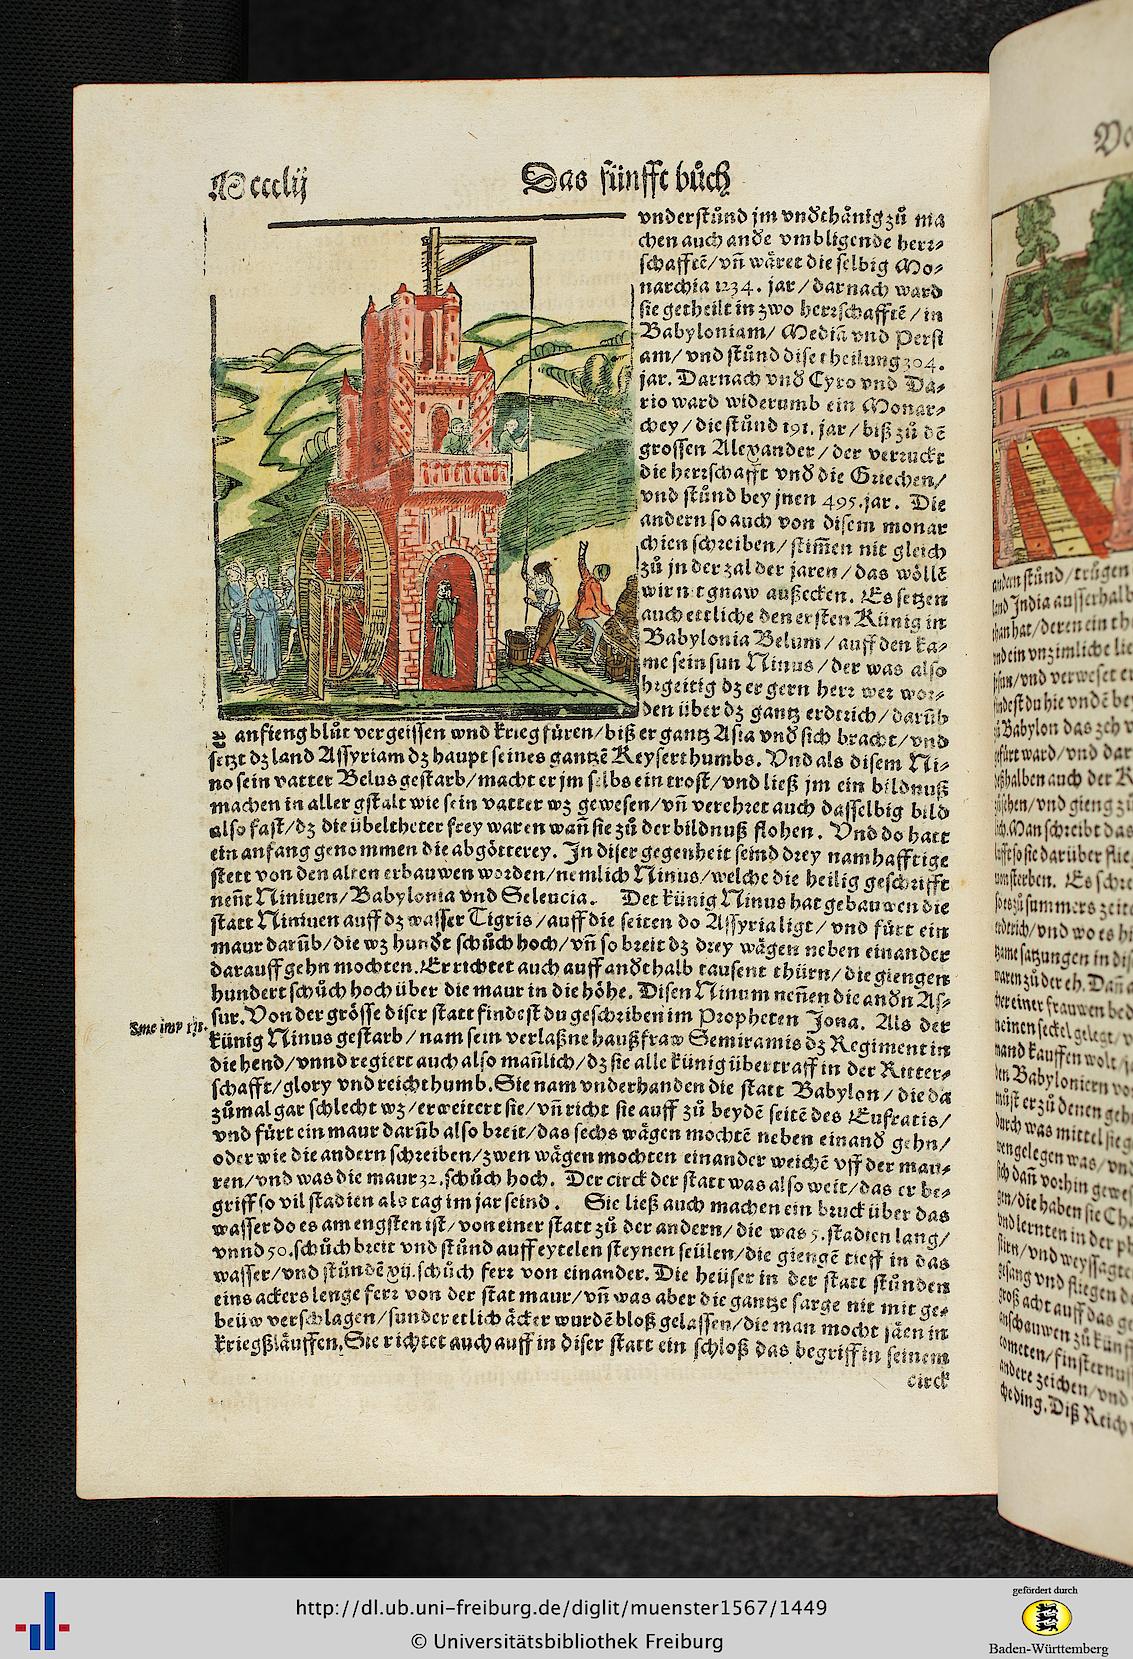 Mcccclij
Das fünfft bůch
vnderstůnd jm vnd̄thånig zů ma
chen auch and̄e vmbligende herr⸗
schafftē/vn̄ wåret die selbig Mo⸗
narchia 1234. jar/darnach ward
sie getheilt in zwo herrschafftē/in
Babyloniam/Mediā vnd Persi
am/vnd stůnd dise theilung 304.
jar. Darnach vnd̄ Cyro vnd Da⸗
rio ward widerumb ein Monar⸗
chey/die stůnd 191. jar/biß zů dē
grossen Alexander/der verzuckt
die herrschafft vnd̄ die Griechen/
vnd stůnd bey jnen 495. jar. Die
andern so auch von disem monar
chien schreiben/stim̄en nit gleich
zů in der zal der jaren/das wöllē
wir nit gnaw außecken. Es setzen
auch ettliche den ersten Künig in
Babylonia Belum/auff den ka⸗
me sein sun Ninus/der was also
hrgeitig dz er gern herr wer wor⸗
den über dz gantz erdtrich/darūb
anfieng blůt vergeissen wnd krieg füren/biß er gantz Asia vnd̄ sich bracht/vnd
setzt dz land Assyriam dz haupt seines gantzē Keyserthumbs. Vnd als disem Ni⸗
no sein vatter Belus gestarb/macht er jm selbs ein trost/vnd ließ jm ein bildnuß
machen in aller gstalt wie sein vatter wz gewesen/vn̄ verehret auch dasselbig bild
also fast/dz die übeltheter frey waren wan̄ sie zů der bildnuß flohen. Vnd do hatt
ein anfang genommen die abgötterey. In diser gegenheit seind drey namhafftige
stett von den alten erbauwen worden/nemlich Ninus/welche die heilig geschrifft
nen̄t Niniuen/Babylonia vnd Seleucia. Der künig Ninus hat gebauwen die
statt Niniuen auff dz wasser Tigris/auff die seiten do Assyria ligt/vnd fürt ein
maur darūb/die wz hund̄t schůch hoch/vn̄ so breit dz drey wägen neben einander
darauff gehn mochten. Er richtet auch auff and̄thalb tausent thürn/die giengen
hundert schůch hoch über die maur in die höhe. Disen Ninum nen̄en die and̄n As⸗
sur. Von der grösse diser statt findest du geschriben im Propheten Jona. Als der
künig Ninus gestarb/nam sein verlaßne haußfraw Semiramis dz Regiment in
die hend/vnnd regiert auch also man̄lich/dz sie alle künig übertraff in der Ritter⸗
schafft/glory vnd reichthumb. Sie nam vnderhanden die statt Babylon/die da
zůmal gar schlecht wz/erweitert sie/vn̄ richt sie auff zů beydē seitē des Eufratis/
vnd fürt ein maur darūb also breit/das sechs wägen mochtē neben einand̄ gehn/
oder wie die andern schreiben/zwen wägen mochten einander weichē vff der mau⸗
ren/vnd was die maur 32. schůch hoch. Der circk der statt was also weit/das er be⸗
griff so vil stadien als tag im jar seind. Sie ließ auch machen ein bruck über das
wasser do es am engsten ist/von einer statt zů der andern/die was 5. stadien lang/
vnnd 50. schůch breit vnd stůnd auff eytelen steynen seülen/die giengē tieff in das
wasser/vnd stůndē xij. schůch ferr von einander. Die heüser in der statt stůnden
eins ackers lenge ferr von der stat maur/vn̄ was aber die gantze sarge nit mit ge⸗
beüw verschlagen/sunder etlich äcker wurdē bloß gelassen/die man mocht säen in
kriegßläuffen. Sie richtet auch auff in diser statt ein schloß das begriff in seinem
circk
http://dl.ub.uni-freiburg.de/diglit/muenster1567/1449
© Universitätsbibliothek Freiburg
gefördert durch
Baden-Württemberg